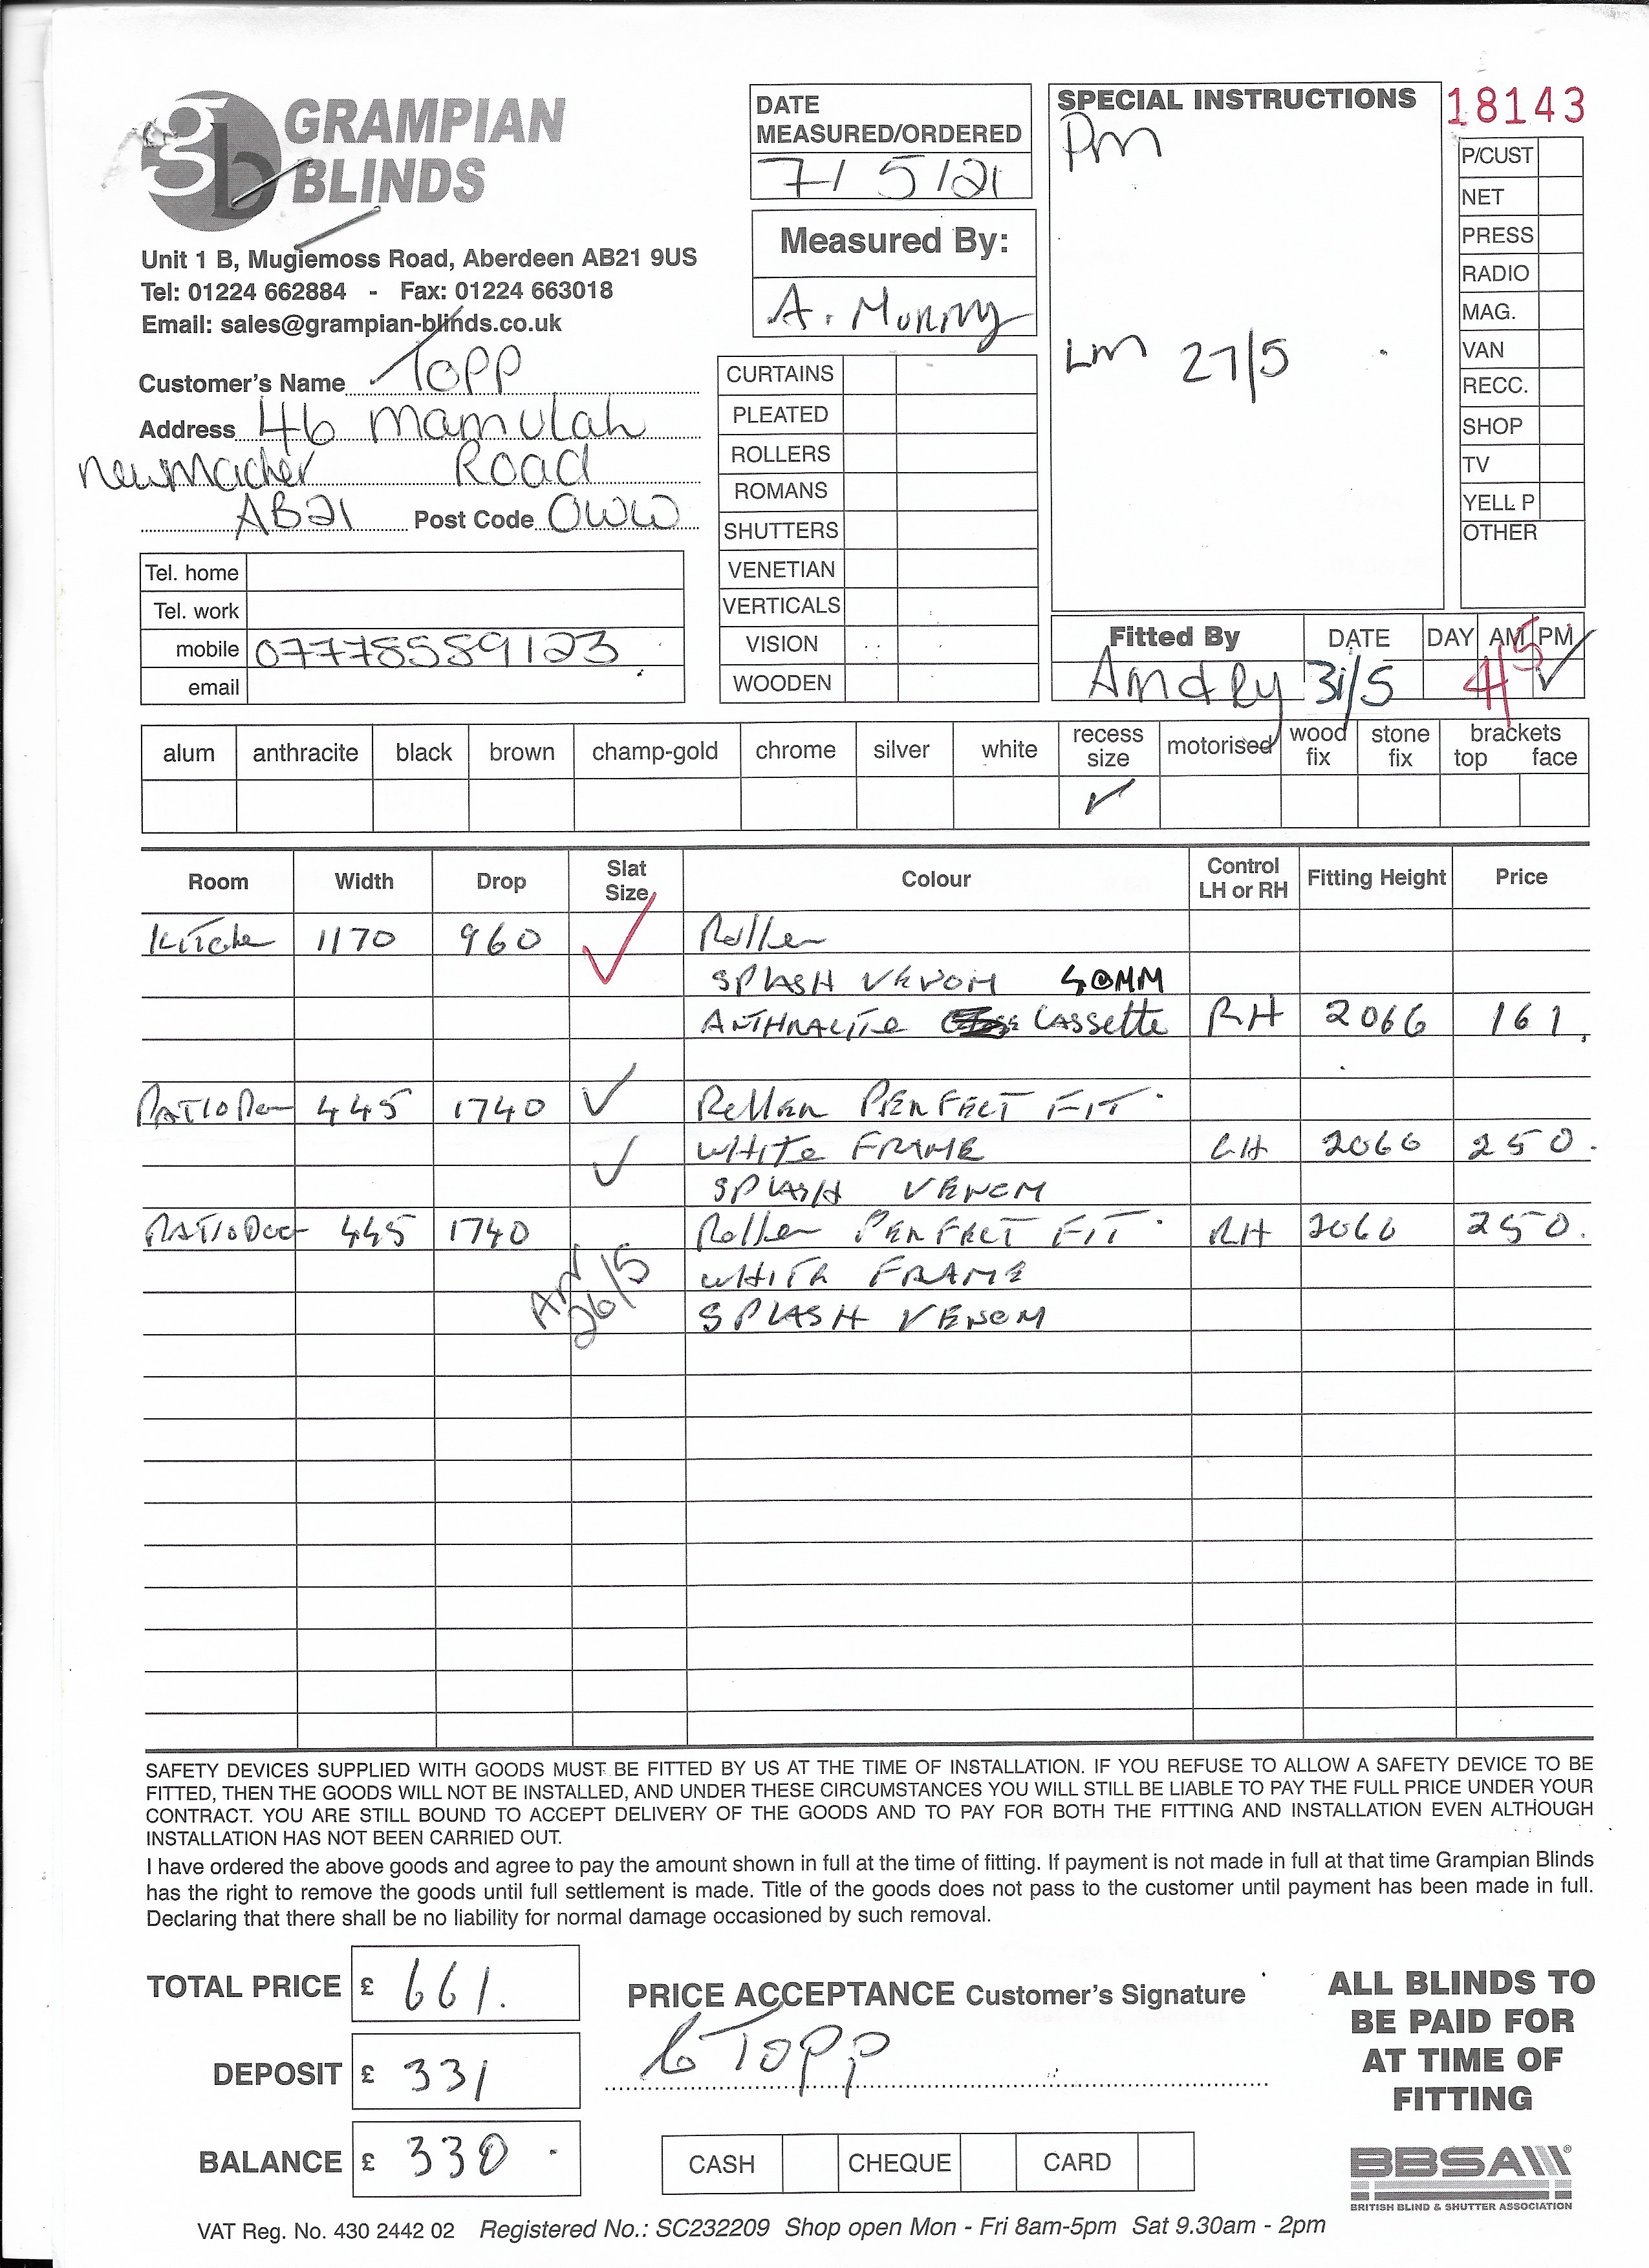 gb GRAMPIAN BLINDS
Unit 1 B, Mugiemoss Road, Aberdeen AB21 9US
Tel: 01224 662884 - Fax: 01224 663018
Email: sales@grampian-blinds.co.uk
Customer's Name Topp
Address 46 Mamulah
Newmacher Road
AB21 Post Code 0WW
Tel. home
Tel. work
mobile 07778559123
email
DATE MEASURED/ORDERED
7/5/21
Measured By:
A. Murray
CURTAINS
PLEATED
ROLLERS
ROMANS
SHUTTERS
VENETIAN
VERTICALS
VISION
WOODEN
SPECIAL INSTRUCTIONS
Pm
Lm 27/5
18143
P/CUST
NET
PRESS
RADIO
MAG.
VAN
RECC.
SHOP
TV
YELL P
OTHER
Fitted By DATE DAY AM PM
Andry 31/5 4/5 ✓
alum anthracite black brown champ-gold chrome silver white recess size motorised wood fix stone fix brackets top face
✓
Room Width Drop Slat Size Colour Control LH or RH Fitting Height Price
Kitche 1170 960 ✓ Roller
SPLASH VENOM 40MM
ANTHRACITE Cassette RH 2066 161.
445 1740 ✓ Roller PERFECT FIT
✓ WHITE FRAME LH 2060 250.
SPLASH VENOM
PATIO Door 445 1740 Roller PERFECT FIT RH 2060 250.
AN 26/5 WHITE FRAME
SPLASH VENOM
SAFETY DEVICES SUPPLIED WITH GOODS MUST BE FITTED BY US AT THE TIME OF INSTALLATION. IF YOU REFUSE TO ALLOW A SAFETY DEVICE TO BE
FITTED, THEN THE GOODS WILL NOT BE INSTALLED, AND UNDER THESE CIRCUMSTANCES YOU WILL STILL BE LIABLE TO PAY THE FULL PRICE UNDER YOUR
CONTRACT. YOU ARE STILL BOUND TO ACCEPT DELIVERY OF THE GOODS AND TO PAY FOR BOTH THE FITTING AND INSTALLATION EVEN ALTHOUGH
INSTALLATION HAS NOT BEEN CARRIED OUT.
I have ordered the above goods and agree to pay the amount shown in full at the time of fitting. If payment is not made in full at that time Grampian Blinds
has the right to remove the goods until full settlement is made. Title of the goods does not pass to the customer until payment has been made in full.
Declaring that there shall be no liability for normal damage occasioned by such removal.
TOTAL PRICE £ 661.
DEPOSIT £ 331
BALANCE £ 330
PRICE ACCEPTANCE Customer's Signature
G Topp
CASH CHEQUE CARD
ALL BLINDS TO
BE PAID FOR
AT TIME OF
FITTING
BBSA®
BRITISH BLIND & SHUTTER ASSOCIATION
VAT Reg. No. 430 2442 02 Registered No.: SC232209 Shop open Mon - Fri 8am-5pm Sat 9.30am - 2pm